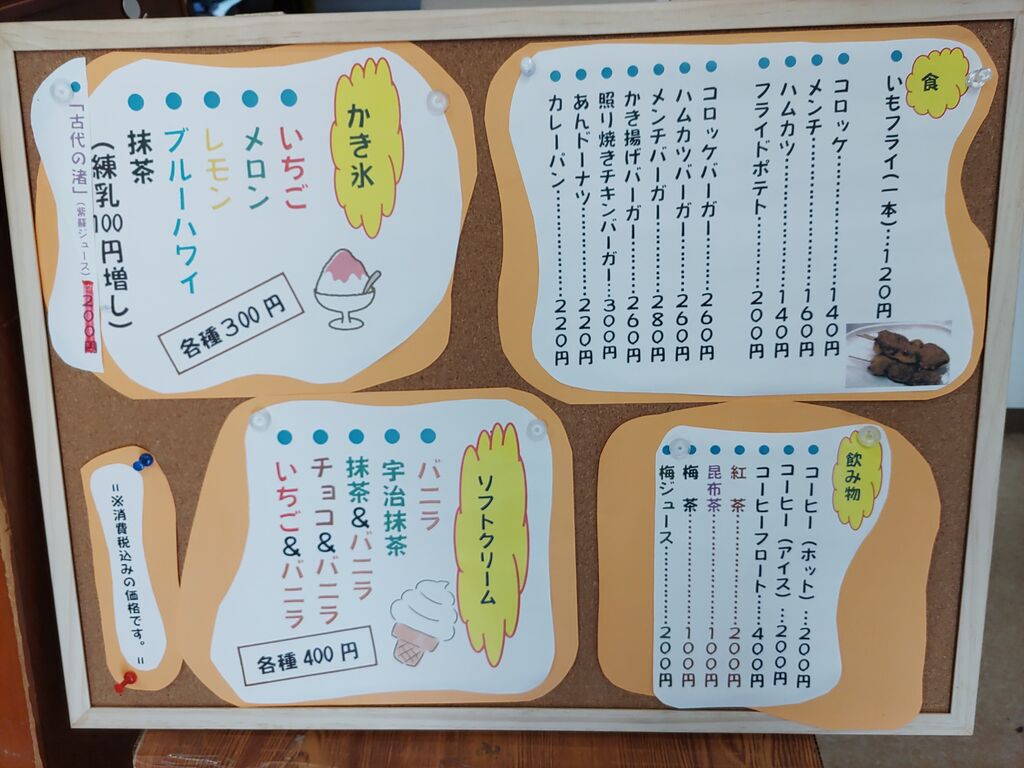 食
いもフライ(一本)…120円
コロッケ…………140円
メンチ…………160円
ハムカツ…………140円
フライドポテト…………200円
コロッケバーガー…………260円
ハムカツバーガー…………260円
メンチバーガー…………280円
かき揚げバーガー…………260円
照り焼きチキンバーガー…300円
あんドーナツ…………220円
カレーパン…………220円
かき氷
いちご
メロン
レモン
ブルーハワイ
抹茶
(練乳100円増し)
各種300円
「古代の渚」(紫蘇ジュース)
200円
飲み物
コーヒー(ホット)…200円
コーヒー(アイス)…200円
コーヒーフロート…400円
紅茶…………200円
昆布茶…………100円
梅茶…………100円
梅ジュース…………200円
ソフトクリーム
バニラ
宇治抹茶
抹茶&バニラ
チョコ&バニラ
いちご&バニラ
各種400円
=※消費税込みの価格です。=